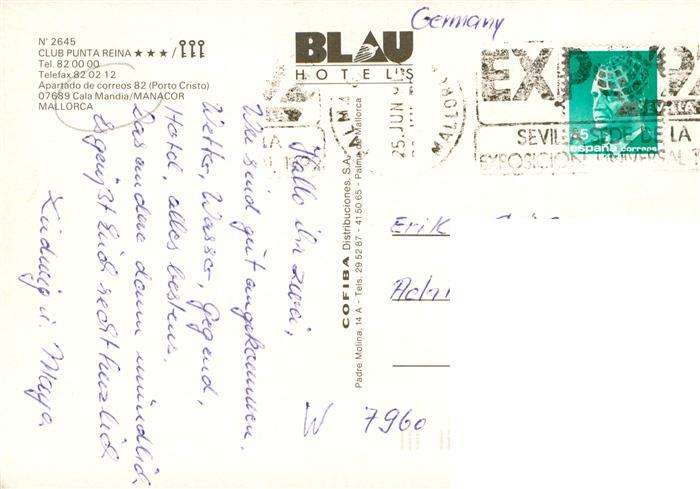 Germany
N° 2645
CLUB PUNTA REINA ★★★/
Tel. 82 00 00
Telefax 82 02 12
Apartado de correos 82 (Porto Cristo)
07689 Cala Mandía/MANACOR
MALLORCA
BLAU
HOTELS
25 JUN
MALLORCA
EXPO 92
SEVILLA SEDE DE LA
EXPOSICION UNIVERSAL
45
españa correos
Hallo ihr zwei,
Wir sind gut angekommen.
Wetter, Wasser, Gegend,
Hotel, alles bestens.
Das andere dann mündlich
Es grüßt Euch recht herzlich
Ludwig u. Maya
COFIBA Distribuciones, S.A.
Padre Molina, 14 A - Tels. 29 52 87 - 41 50 65 - Palma de Mallorca
Erik
W 7960